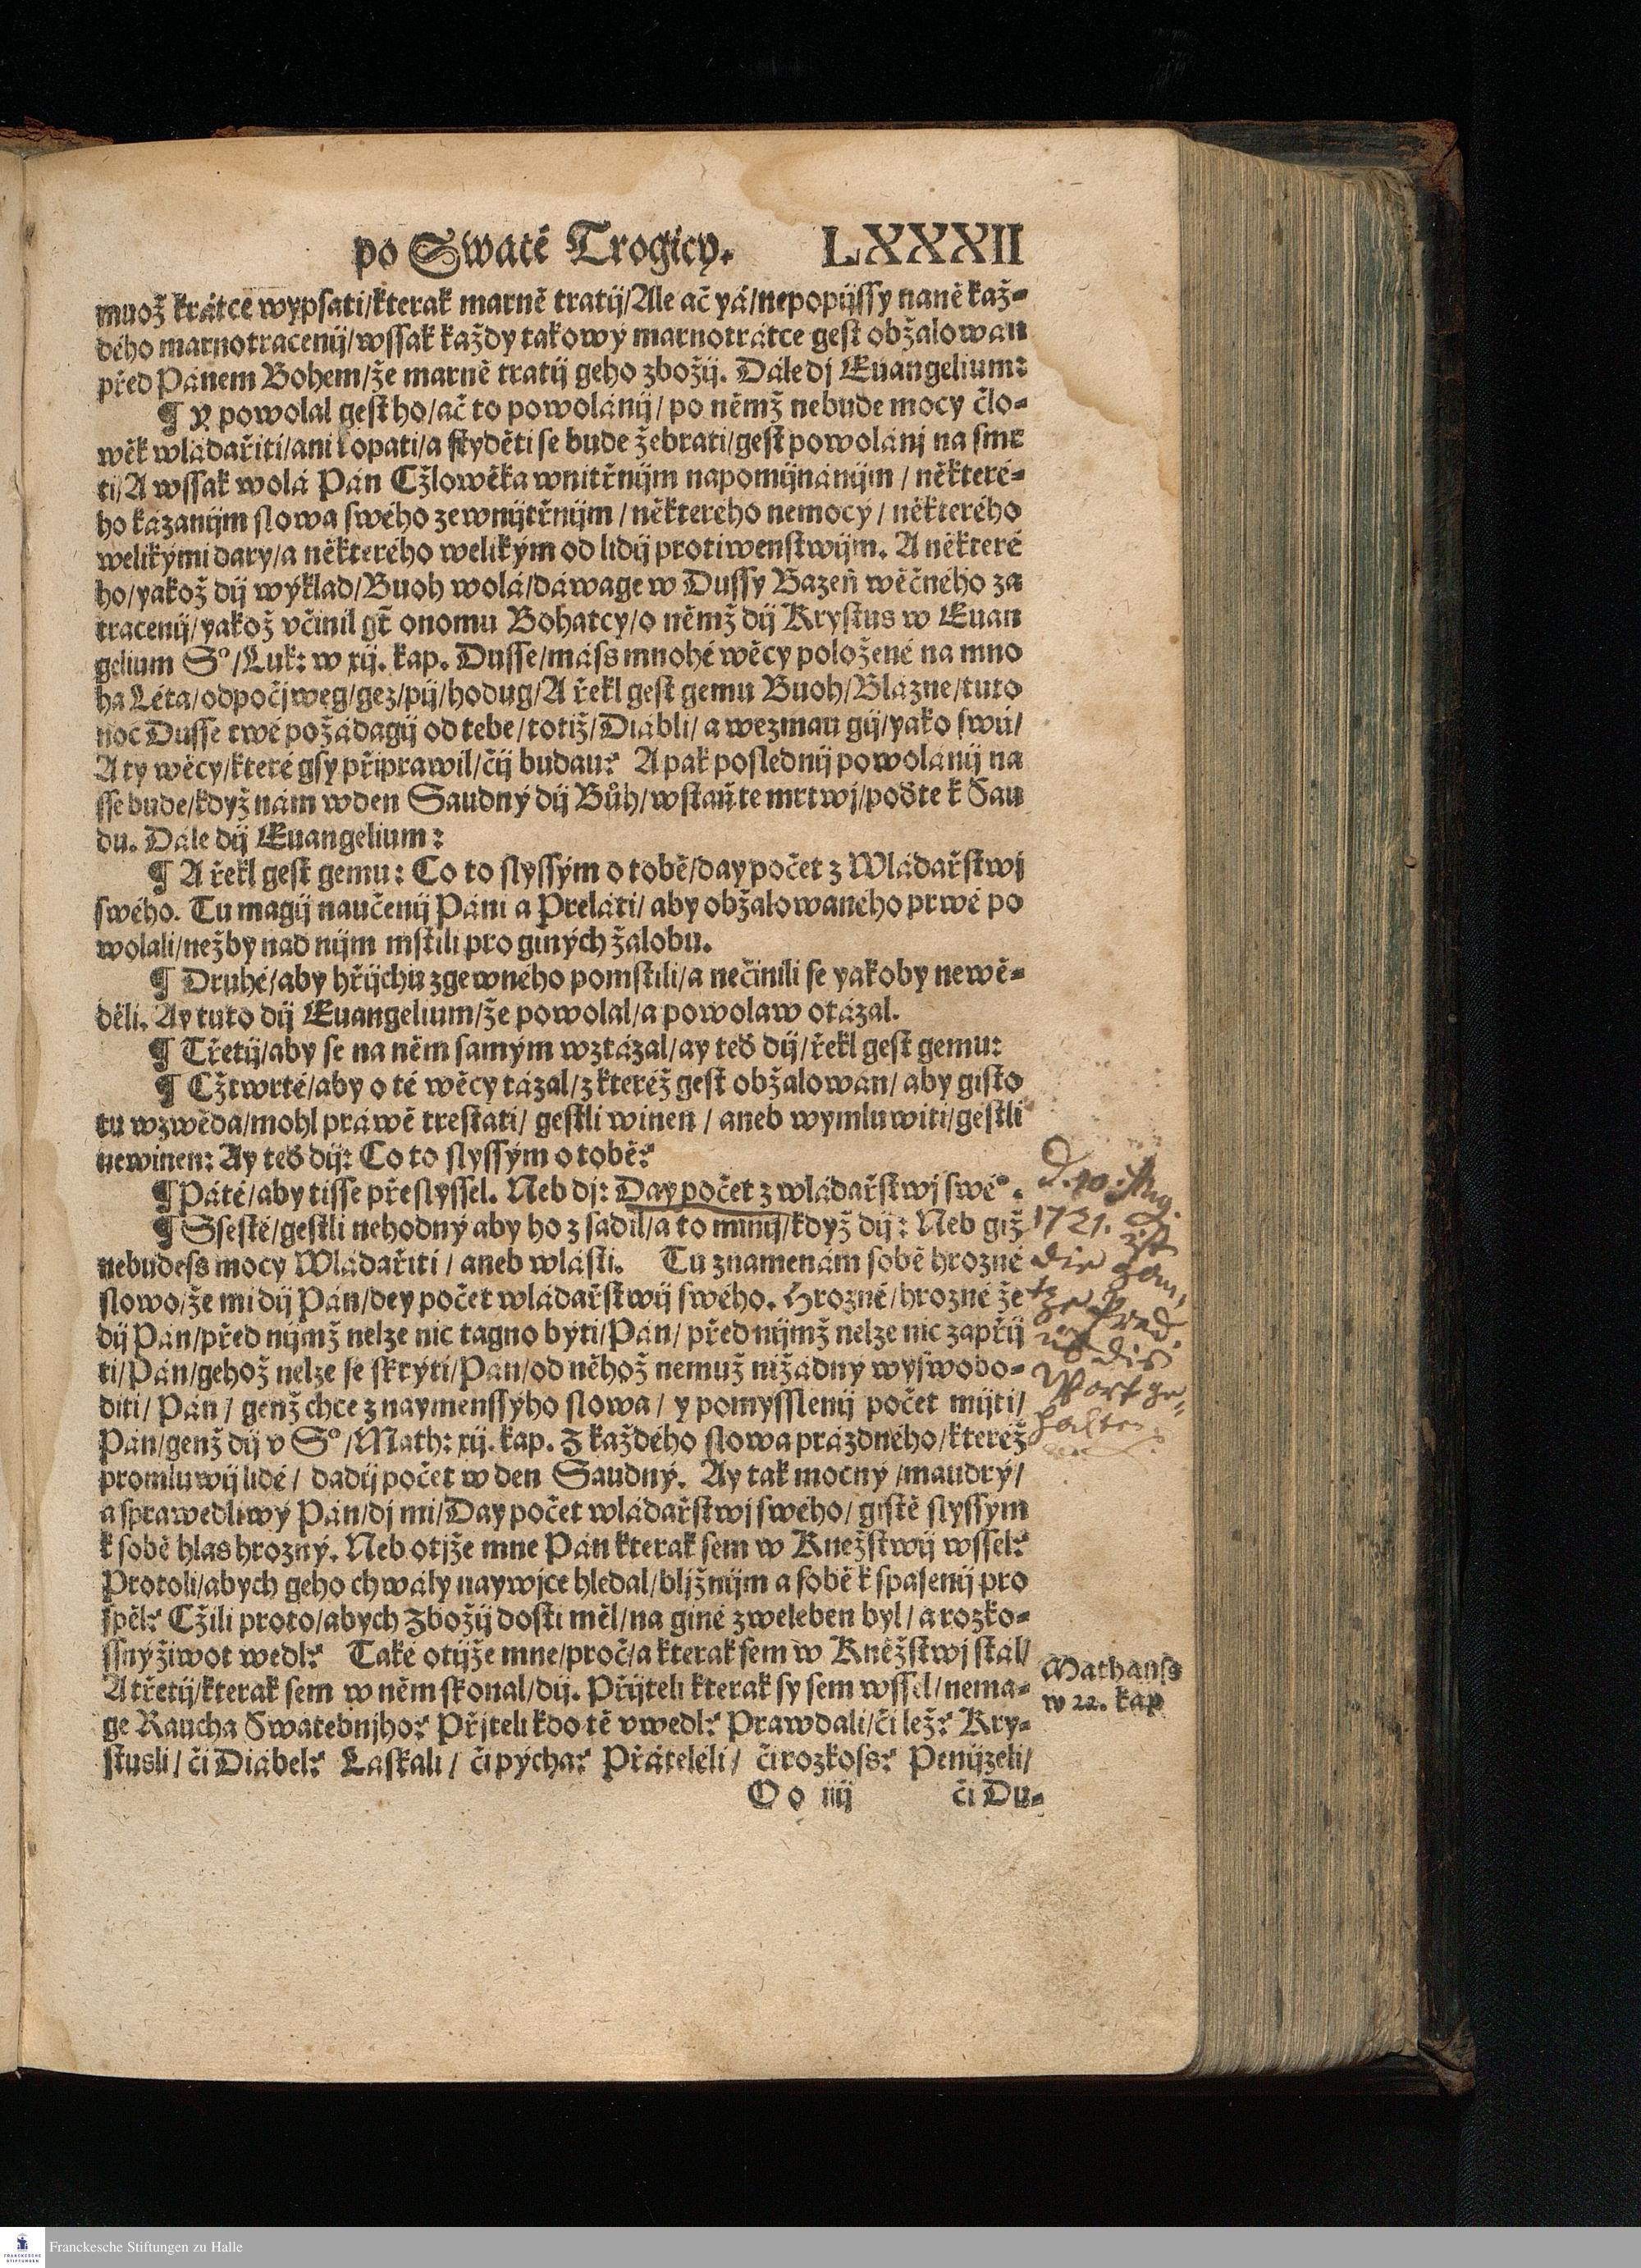 po Swaté Trogicy. LXXXII
muož krátce wypsati/kterak marně tratij/Ale ač yá/nepopijssy naně kaž-
dého marnotracenij/wssak každy takowý marnotrátce gest obžalowan
před Pánem Bohem/že marně tratij geho zbožij. Dále dj Euangelium:
¶ Y powolal gest ho/ač to powolánij/ po němž nebude mocy člo-
wěk wládařiti/ani kopati/a styděti se bude žebrati/gest powolánj na smr
ti/A wssak wolá Pán Cžlowěka wnitřnijm napomijnánijm / některé-
ho kázanijm slowa swého zewnijtřnijm / některého nemocý / některého
welikými dary/a některého welikým od lidij protiwenstwijm. A některé
ho/yakož dij wýklad/Buoh wolá/dáwage w Dussy Bázeň wěčného za
tracenij/yakož včinil gt̃ onomu Bohatcy/o němž dij Krystus w Euan
gelium Sº/Luk: w xij. kap. Dusse/máss mnohé wěcy položené na mno
há Léta/odpočjweg/gez/pij/hodug/A řekl gest gemu Buoh/Blázne/tuto
noc Dusse twé požádagij od tebe/totiž/Diábli/ a wezmau gij/yako swú/
A ty wěcy/které gsy připrawil/čij budau? A pak poslednij powolánij na
sse bude/když nám w den Saudný dij Bůh/wstaňte mrtwj/poďte k Sau
du. Dále dij Euangelium:
¶ A řekl gest gemu: Co to slyssým o tobě/day počet z Wládařstwj
swého. Tu magij naučenij Páni a Preláti/ aby obžalowaného prwé po
wolali/nežby nad nijm mstili pro giných žalobu.
¶ Druhé/aby hřijchu zgewného pomstili/a nečinili se yakoby newě-
děli. Ay tuto dij Euangelium/že powolal/a powolaw otázal.
¶ Třetij/aby se na něm samým wztázal/ay teď dij/řekl gest gemu:
¶ Cžtwrté/aby o té wěcy tázal/z kteréž gest obžalowán/ aby gisto
tu wzwěda/mohl práwě trestati/ gestli winen / aneb wymluwiti/gestli
newinen: Ay teď dij: Co to slyssým o tobě?
¶ Páté/aby tisse přeslyssel. Neb dj: Day počet z wládařstwj swéº.
¶ Ssesté/gestli nehodný aby ho z sadil/a to mmij/když dij: Neb giž
nebudess mocy Wládařiti / aneb wlásti. Tu znamenám sobě hrozné
slowo/že mi dij Pán/dey počet wládařstwij swého. Hrozné/hrozné že
dij Pán/před nijmž nelze nic tagno býti/Pán/ před nijmž nelze nic zapřij
ti/Pán/gehož nelze se skrýti/Pán/od něhož nemuž nižádný wyswobo-
diti/ Pán / genž chce z naymenssýho slowa / y pomysslenij počet mijti/
Pán/genž dij v Sº/Math: xij. kap. Z každého slowa prázdného/kteréž
promluwij lidé / dadij počet w den Saudný. Ay tak mocný /maudrý/
a sprawedliwý Pán/dj mi/Day počet wládařstwj swého/ gistě slyssým
k sobě hlas hrozný. Neb otjže mne Pán kterak sem w Kněžstwij wssel?
Protoli/abych geho chwály naywjce hledal/bližnijm a sobě k spasenij pro
spěl? Cžili proto/abych Zbožij dosti měl/na giné zweleben byl/ a rozko-
ssný žiwot wedl? Také otijže mne/proč/a kterak sem w Kněžstwj stál/
A třetij/kterak sem w něm skonal/dij. Přijteli kterak sy sem wssel/nema-
ge Raucha Swatebnjho? Přjteli kdo tě vwedl? Prawdali/či lež? Kry-
stusli/ či Diábel? Láskali / či pýcha? Přáteléli/ či rozkoss? Penijzeli/
O o iij či Du-
d. 10. Aug.
1721. ist
die gan-
tze Pred.
üb. diß
Wort ge-
halten
Mathauss
w 22. kap
Franckesche Stiftungen zu Halle